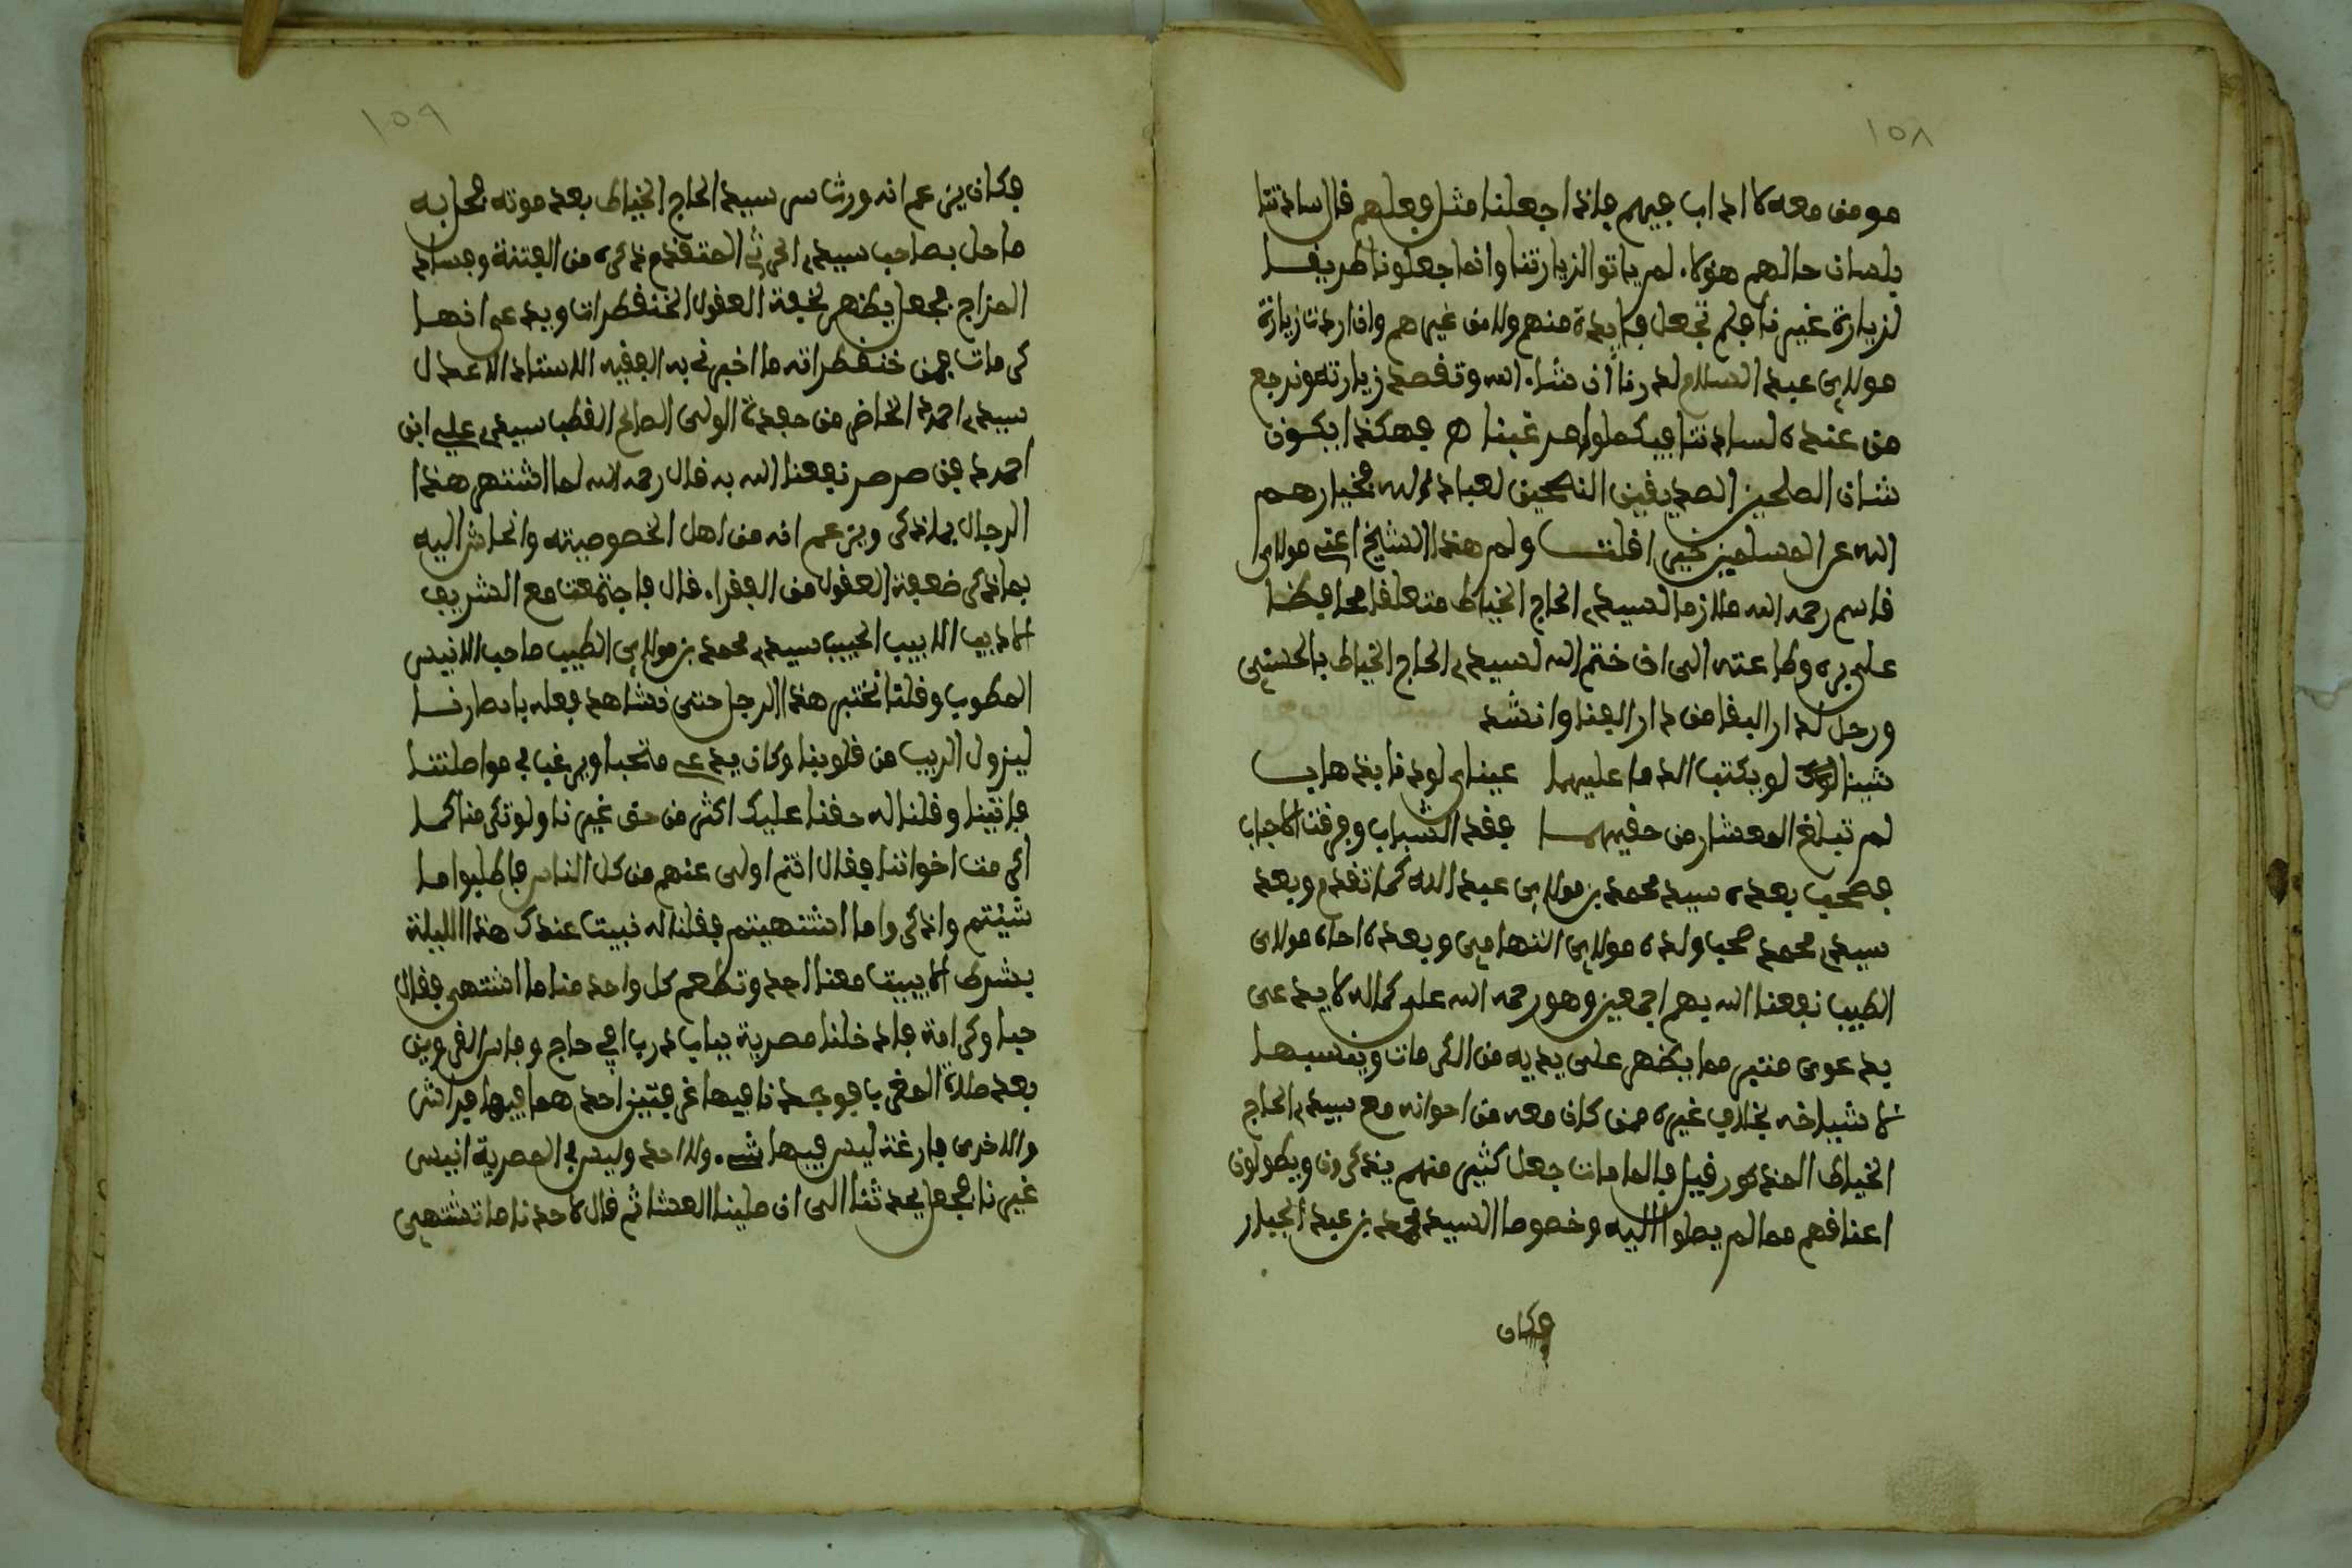 ١٥٨
مومن معه لا اداب فيهم فاذا جعلنا مثل فعلهم قال ساداتنا
بلسان حالهم هؤلاء لم ياتوا لزيارتنا وانما جعلونا طريقا
لزيارة غيرنا فلم تجعل فايدة منهم ولا من غيرهم وان اردت زيارة
مولاي عبد السلام لدرنا ان شاء الله ونقصد زيارته ونرجع
من عنده لساداتنا فيكملوا مرغبنا ه فهكذا يكون
شان الصلحين الصديقين النصحين لعباد الله فجزاهم
الله عن المسلمين خيرا قلت ولم هذا الشيخ اعني مولاي
قاسم رحمه الله ملازما لسيدي الحاج الخياط متعلقا محافظا
على بره وطاعته الى ان ختم الله لسيدي الحاج الخياط بالحسنى
ورحل لدار البقا من دار الفنا وانشد
شيئان لو يكتب الدما عليهما عيناي لوذنا بذهاب
لم تبلغ المعشار من حقيهما فقد الشباب وفرقت الاحباب
فصحب بعده سيد محمد بن مولاي عبد الله كما تقدم وبعد
سيدي محمد صحب ولده مولاي التهامي وبعده اخاه مولاي
الطيب نفعنا الله بهم اجمعين وهو رحمه الله على كماله لا يدعى
بدعوى منتبر مما يظهر على يديه من الكرمات وينسبها
لاشياخه بخلاف غيره ممن كان معه من اخوانه مع سيدي الحاج
الخياط المذكور فيل فالما مات جعل كثير منهم يذكرون ويطولون
اعناقهم مما لم يصلوا اليه وخصوصا السيد محمد بن عبد الجبار
فكان
١٥٩
فكان يزعم انه ورث سر سيد الحاج الخياط بعد موته فحل به
ما حل بصاحب سيدي الحرثي المتقدم ذكره من الفتنة وفساد
المزاج فجعل يظهر لخفة العقول الخنقطرات ويدعي انها
كرمات فمن خنقطراته ما اخبرني به الفقيه الاستاذ الاعدل
سيدي احمد الخاض من حفدة الولي الصالح القطب سيدي علي ابن
احمد فين صرصر نفعنا الله به قال رحمه الله لما اشتهر هذا
الرجال بما ذكر ويزعم انه من اهل الخصوصيته وانحاش اليه
بما ذكر ضعفة العقول من الفقراء قال فاجتمعت مع الشريف
الاديب اللابيب الحبيب سيدي محمد بن مولاي الطيب صاحب الانيس
المطرب وقلنا نختبر هذا الرجل حتى نشاهد فعله بابصارنا
ليزول الريب من قلوبنا وكان يدعي متحبا ويرغب في مواصلتنا
فاتينا وقلنا له حقنا عليك اكثر من حق غيرنا ولو تكرمنا كما
اكرمت اخواننا فقال انتم اولى عنهم من كل الناس فاطلبوا ما
شيتم واذكروا ما اشتهيتم فقلنا له نبيت عندك هذا الليلة
بشرط الا يبيت معنا احد وتطعم كل واحد منا ما اشتهى فقال
حبا وكرامة فادخلنا مصرية بباب درب افي حاج وفاس القرويين
بعد صلاة المغرب فوجدنا فيها غرفتين احدهما فيها فراش
والاخرى فارغة ليس فيها شيء ولا احد وليس في المصرية انيس
غيرنا فجعل يحدثنا الى ان صلينا العشا ثم قال لاحدنا ما تشتهي